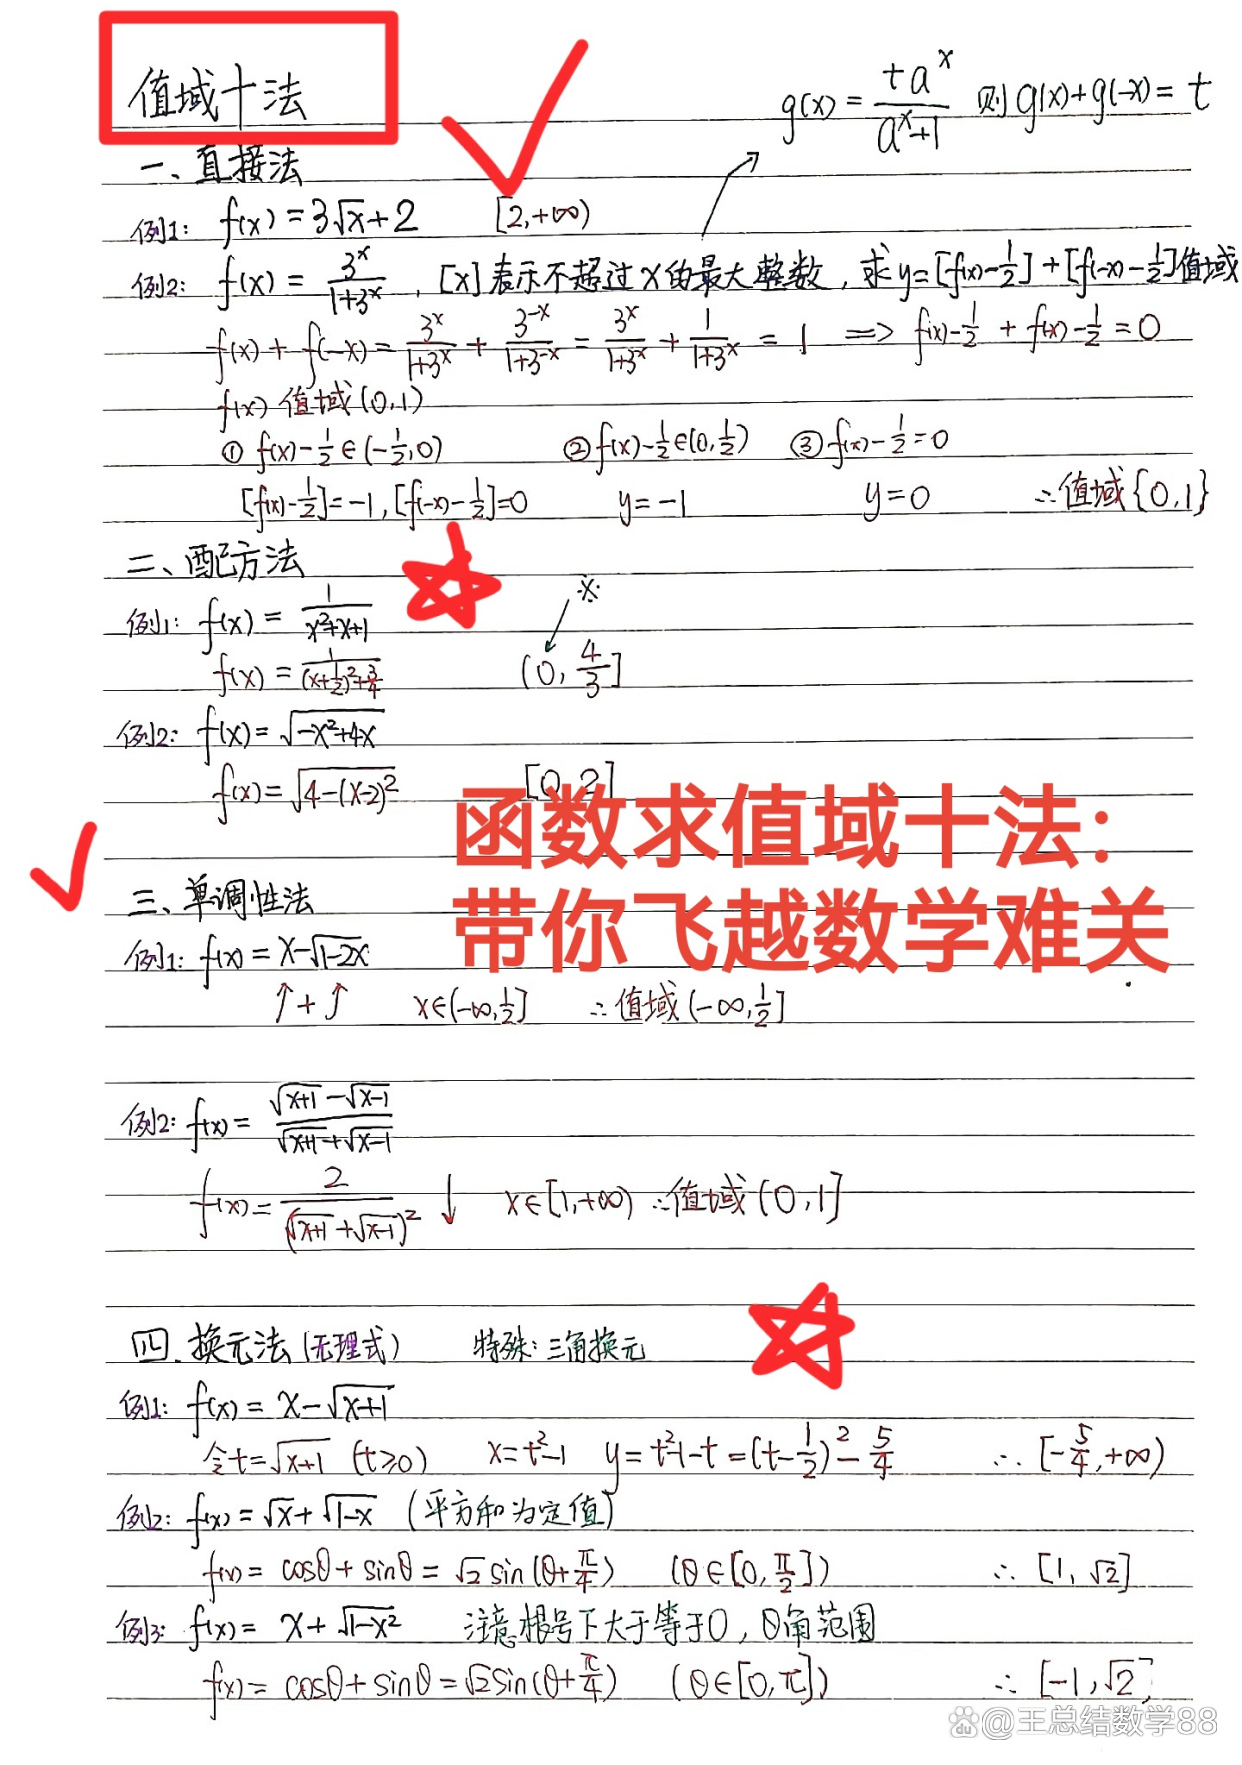 值域十法
g(x) = ta^x/(a^x+1) 则 g(x)+g(-x) = t
一、直接法
例1: f(x) = 3√x+2 [2,+∞)
例2: f(x) = 3^x/(1+3^x), [x]表示不超过x的最大整数, 求y=[f(x)-1/2]+[f(-x)-1/2]值域
f(x) + f(-x) = 3^x/(1+3^x) + 3^-x/(1+3^-x) = 3^x/(1+3^x) + 1/(1+3^x) = 1 => f(x)-1/2 + f(x)-1/2 = 0
f(x) 值域(0,1)
① f(x)-1/2∈(-1/2,0) ②f(x)-1/2∈(0,1/2) ③f(x)-1/2=0
[f(x)-1/2]=-1,[f(-x)-1/2]=0 y=-1 y=0 ∴值域{0,1}
二、配方法
例1: f(x) = 1/(x²+x+1) ※
f(x) = 1/((x+1/2)²+3/4) (0,4/3]
例2: f(x)=√(-x²+4x)
f(x)=√(4-(x-2)²) [0,2]
函数求值域十法:
带你飞越数学难关
三、单调性法
例1: f(x) = x-√(1-2x)
↑+↑ x∈(-∞,1/2] ∴值域(-∞,1/2]
例2: f(x) = (√(x+1)-√(x-1))/(√(x+1)+√(x-1))
f(x) = 2/(√(x+1)+√(x-1))² ↓ x∈[1,+∞) ∴值域(0,1]
四、换元法(无理式) 特殊:三角换元
例1: f(x) = x-√(x+1)
令t=√(x+1) (t≥0) x=t²-1 y=t²-1-t=(t-1/2)²-5/4 ∴[-5/4,+∞)
例2: f(x)=√x+√(1-x) (平方和为定值)
f(x)= cosθ+sinθ=√2sin(θ+π/4) (θ∈[0,π/2]) ∴[1,√2]
例3: f(x)= x+√(1-x²) 注意根号下大于等于0,θ角范围
f(x)= cosθ+sinθ=√2sin(θ+π/4) (θ∈[0,π]) ∴[-1,√2]
@王总结数学88